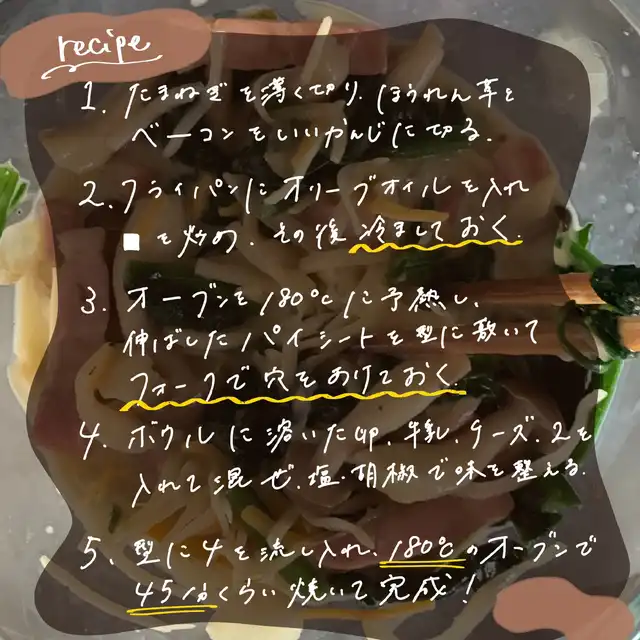 recipe
1. たまねぎを薄く切り、ほうれん草と
ベーコンをいいかんじに切る.
2. フライパンにオリーブオイルを入れ
■を炒め、その後冷ましておく.
3. オーブンを180℃に予熱し、
伸ばしたパイシートを型に敷いて
フォークで穴をあけておく.
4. ボウルに溶いた卵、牛乳、チーズ、2を
入れて混ぜ、塩・胡椒で味を整える.
5. 型に4を流し入れ、180℃のオーブンで
45分くらい焼いて完成!